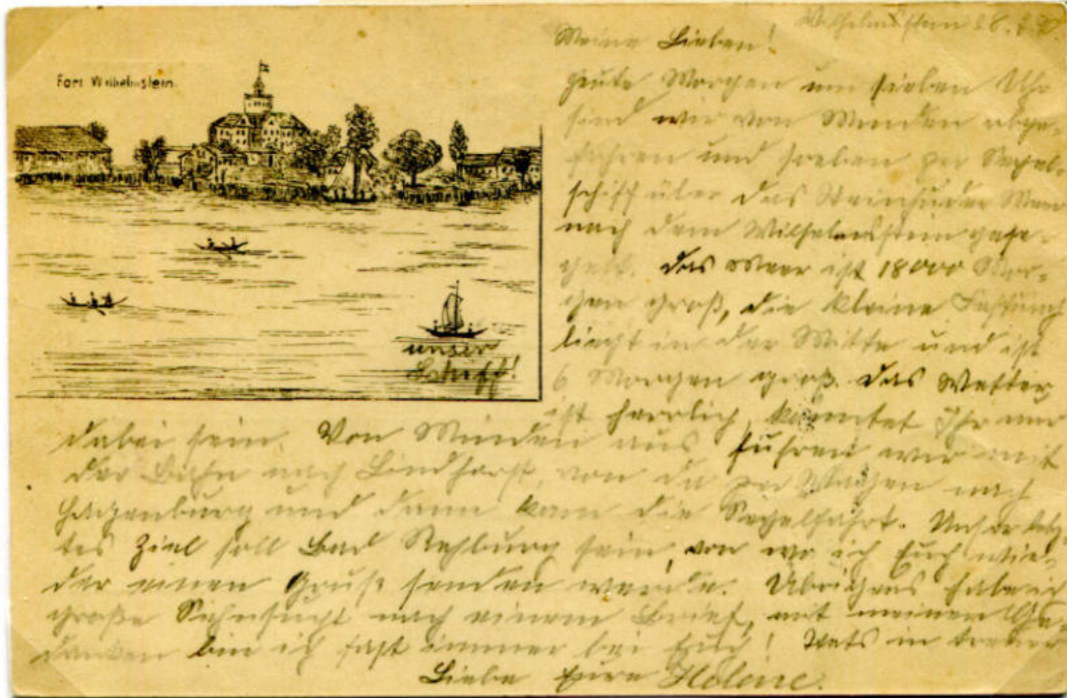 Wilhelmsstein 28.
Fort Wilhelmstein.
Meine Lieben!
Heute Morgen um sieben Uhr
sind wir von Minden abge-
fahren und soeben per Segel-
schiff über das Steinhuder Meer
nach dem Wilhelmsstein gese-
gelt. Das Meer ist 18000 Mor-
gen groß, die kleine Festung
liegt in der Mitte und ist
6 Morgen groß. Das Wetter
ist herrlich, könntet Ihr nur
unser
Schiff!
dabei sein. Von Minden aus fuhren wir mit
der Bahn nach Lindhorst, von da per Wagen nach
Hagenburg und dann kam die Segelfahrt. Unser letz-
tes Ziel soll Bad Rehburg sein, von wo ich Euch wie-
der einen Gruß senden werde. Übrigens habe ich
große Sehnsucht nach einem Brief, mit meinen Ge-
danken bin ich fast immer bei Euch! Stets in treuer
Liebe Eure Helene.